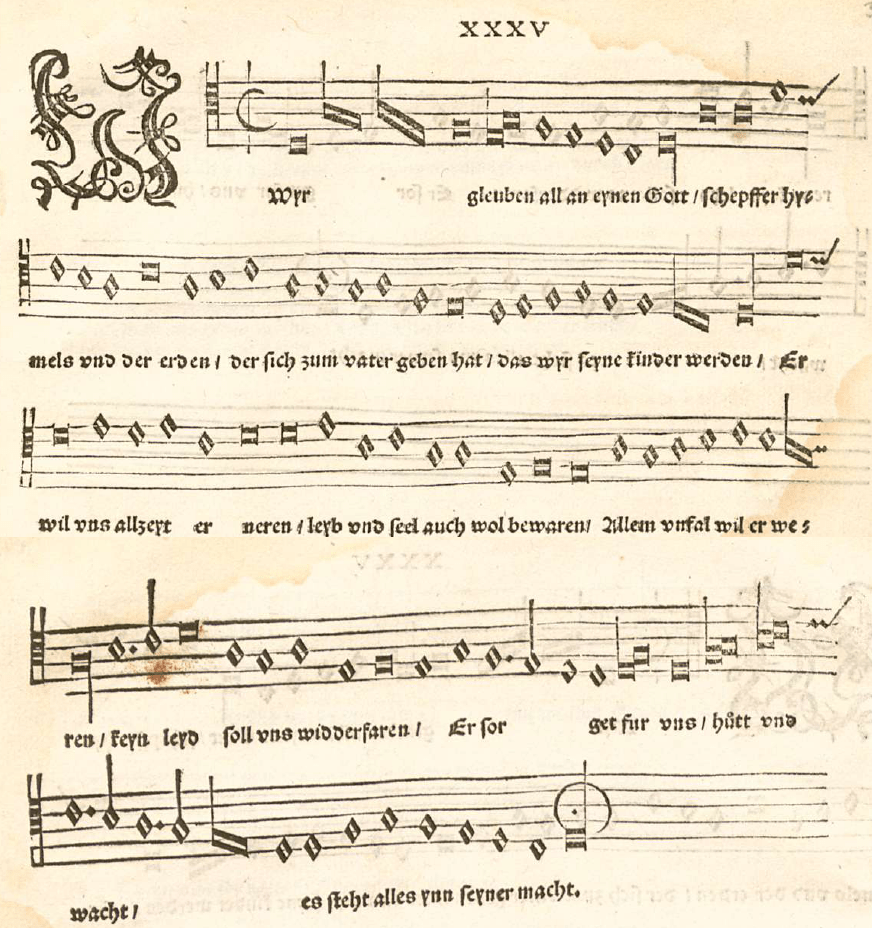 XXXV
Wyr gleuben all an eynen Gott / schepffer hy⸗
mels vnd der erden / der sich zum vater geben hat / das wyr seyne kinder werden / Er
wil vns allzeyt er neren / leyb vnd seel auch wol bewaren / Allem vnfal wil er we⸗
ren / keyn leyd soll vns widderfaren / Er sor get fur vns / huͤtt vnd
wacht / es steht alles ynn seyner macht.